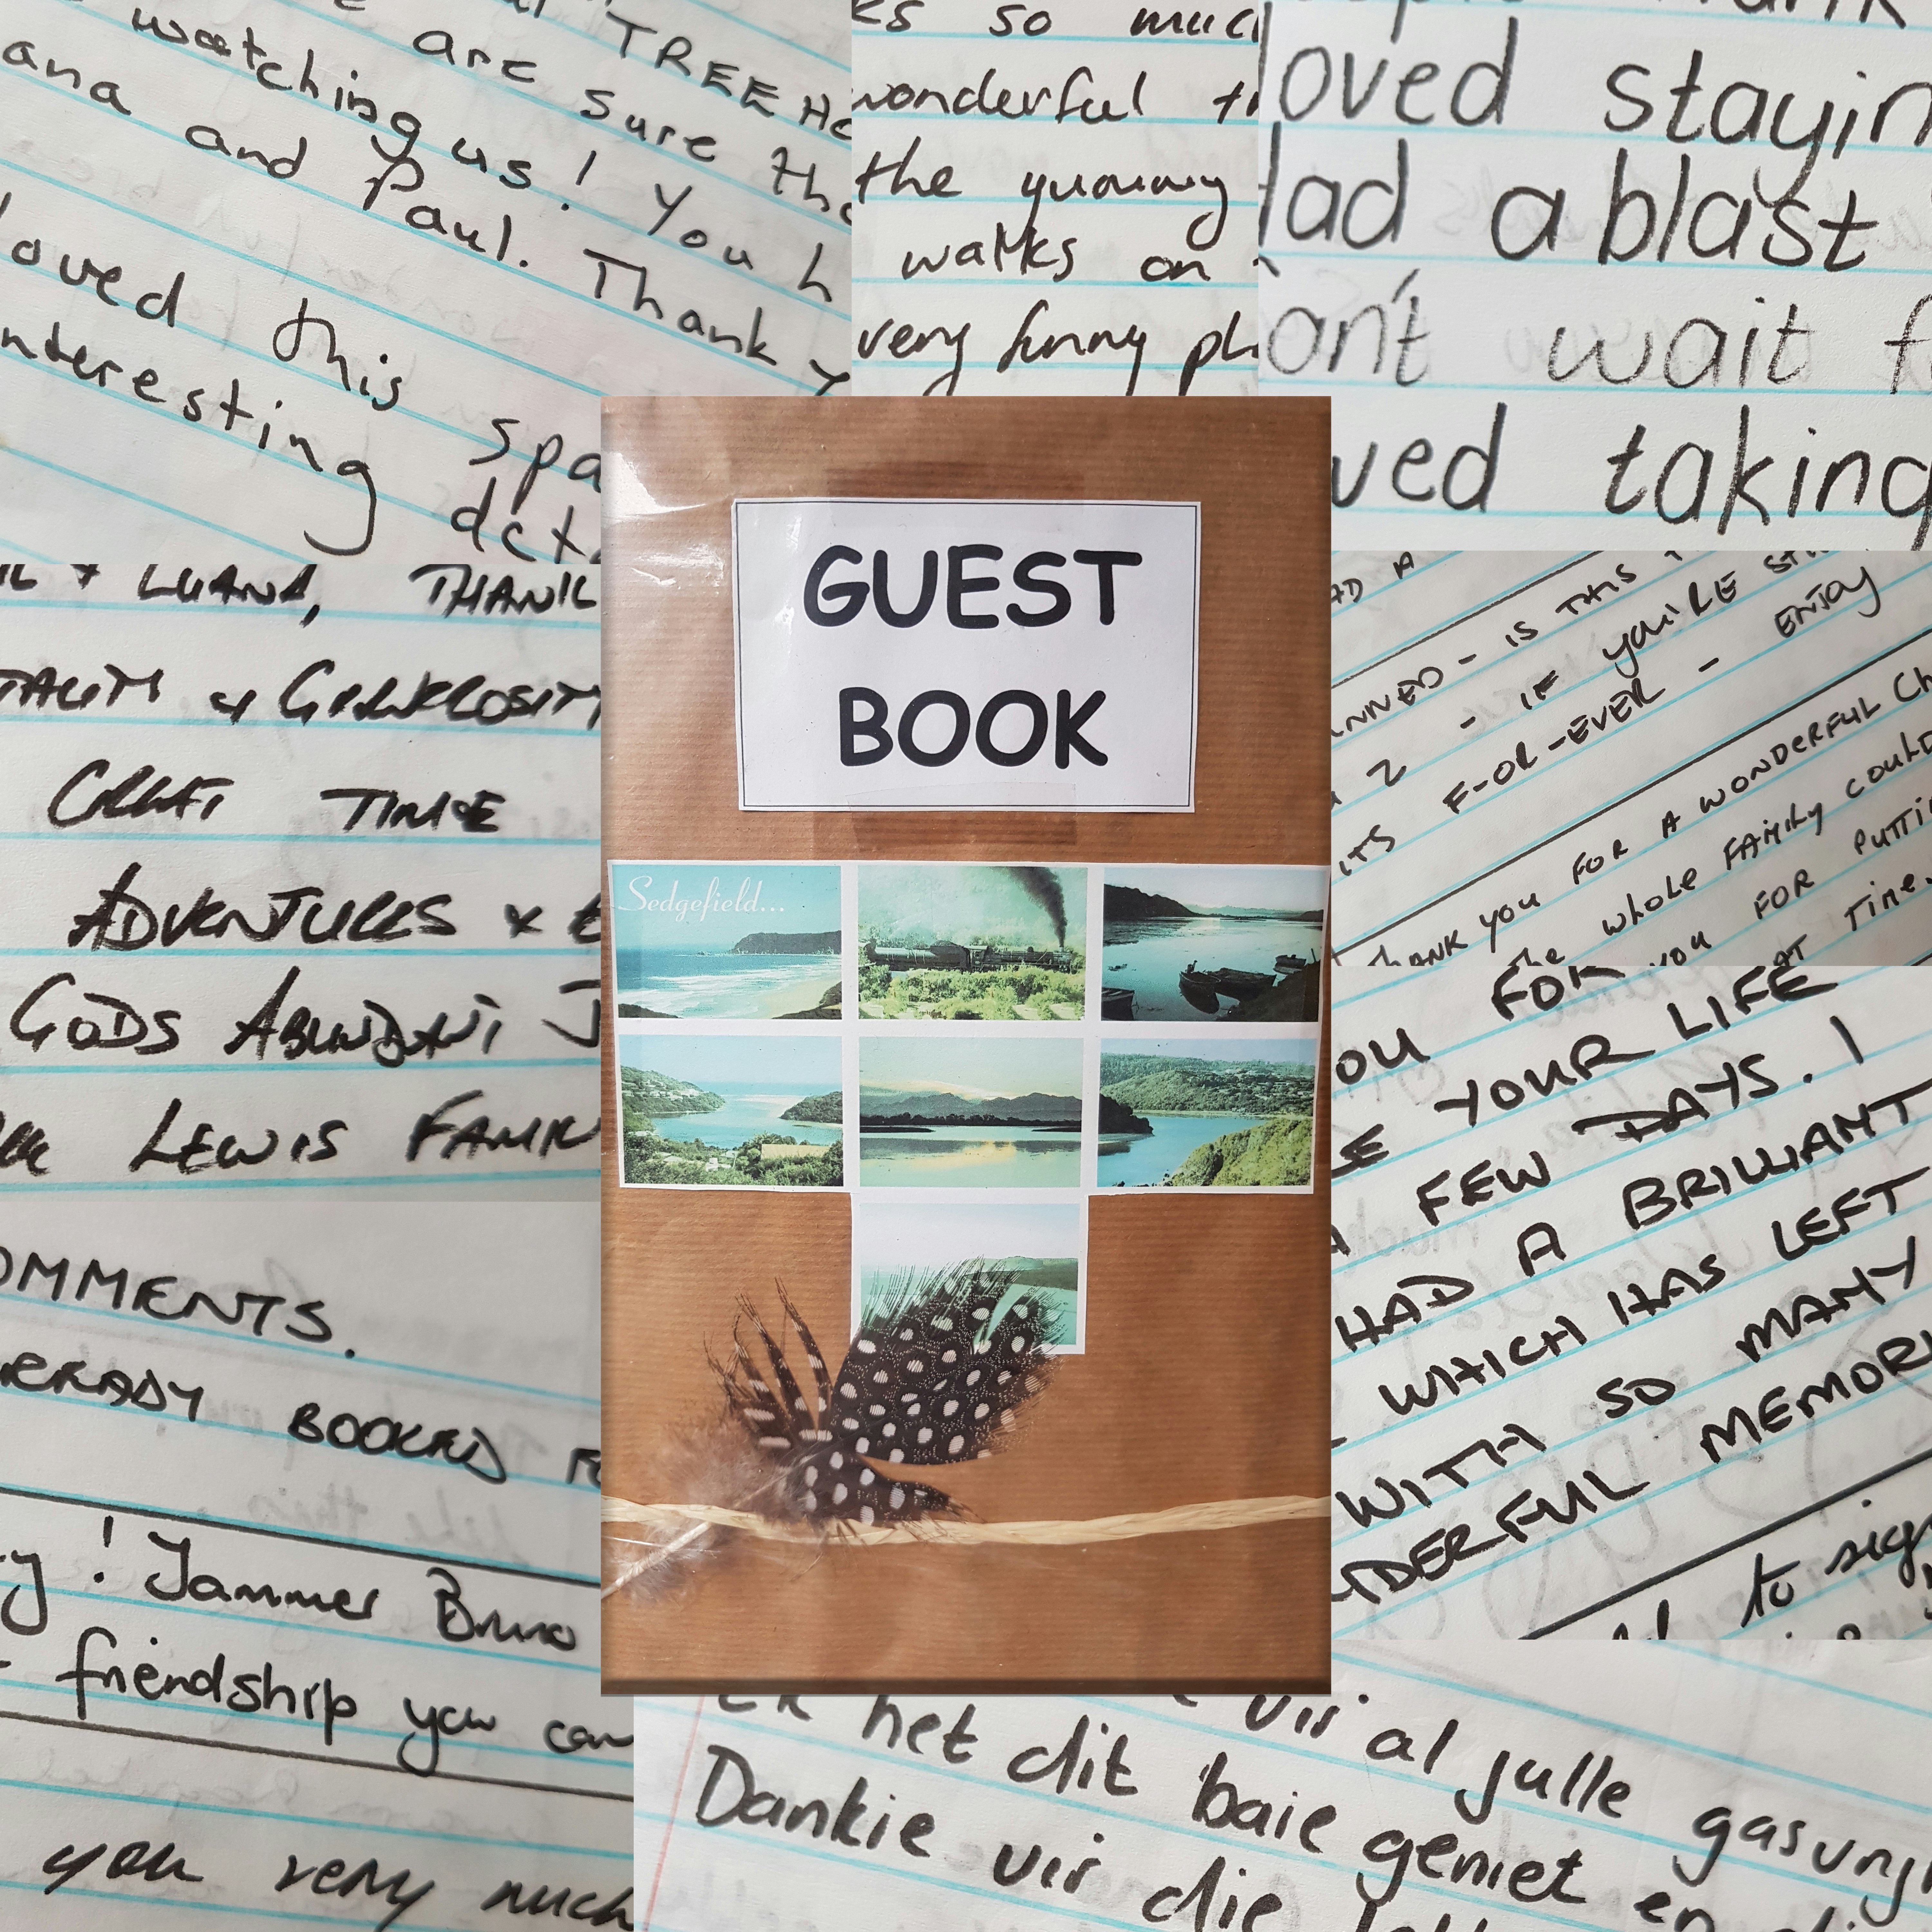 TREE HO
are sure tho
watching us! You h
ana and Paul. Thank y
loved this spa
nteresting deta
ks so much
wonderful ti
the yummy
walks on
very funny ph
loved stayin
Had a blast
an't wait f
ved taking
L + LUANA, THANK
TALITY & GENEROSITY
GREAT TIME
ADVENTURES &
GODS ABUNDANT J
LEWIS FAMILY
AD A
NNED - IS THIS
2 - IF YOU'RE
ITS F-OR-EVER - ENJOY
THANK YOU FOR A WONDERFUL Ch
The whole FAMILY COULD
YOU FOR PUTTI
AT TIME.
GUEST
BOOK
Sedgefield...
OU FOR
E YOUR LIFE
A FEW DAYS. I
HAD A BRILLIANT
WHICH HAS LEFT
WITH SO MANY
NDERFUL MEMORI
to sig
OMMENTS.
READY BOOKED FO
y! Jammer Bruno
friendship you can
you very much
vir al julle gasvry
Ek het dit baie geniet en
Dankie vir die